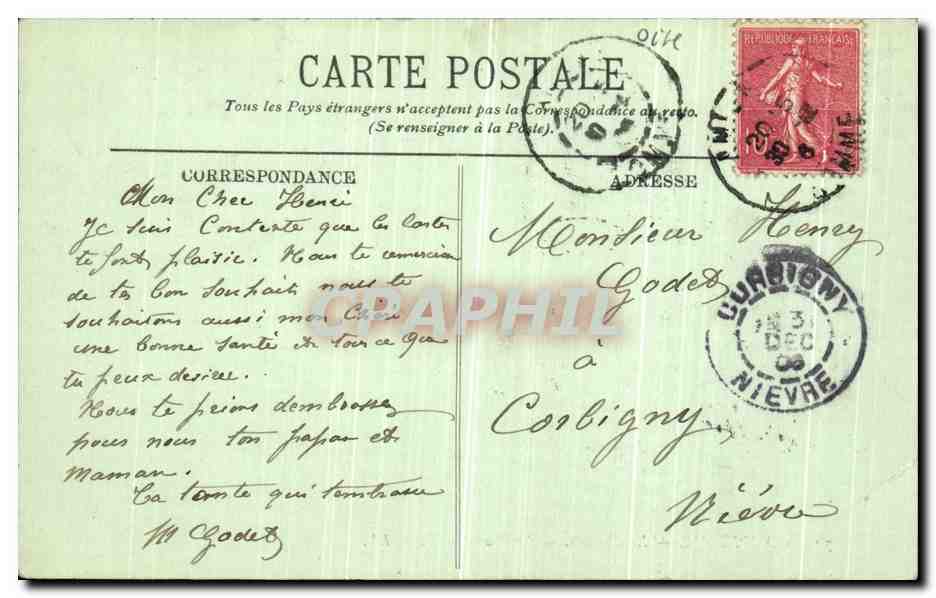 Oise
REPUBLIQUE FRANCAISE
CARTE POSTALE
Tous les Pays étrangers n'acceptent pas la Correspondance au recto.
(Se renseigner à la Poste).
CORRESPONDANCE
ADRESSE
Mon Cher Henri
Je suis Contente que les Cartes
te font plaisir. Nous te remercions
de tes bon souhaits nous te
souhaitons aussi mon Cheri
une bonne santé et tous ce que
tu peux desirer.
Nous te prions dembrasser
pour nous ton papa et
Maman.
Ta tante qui tembrasse
M Godet
Monsieur Henry
Godet
à
Corbigny
Nièvre
CORBIGNY
31
DEC
06
NIEVRE
CPAPHIL